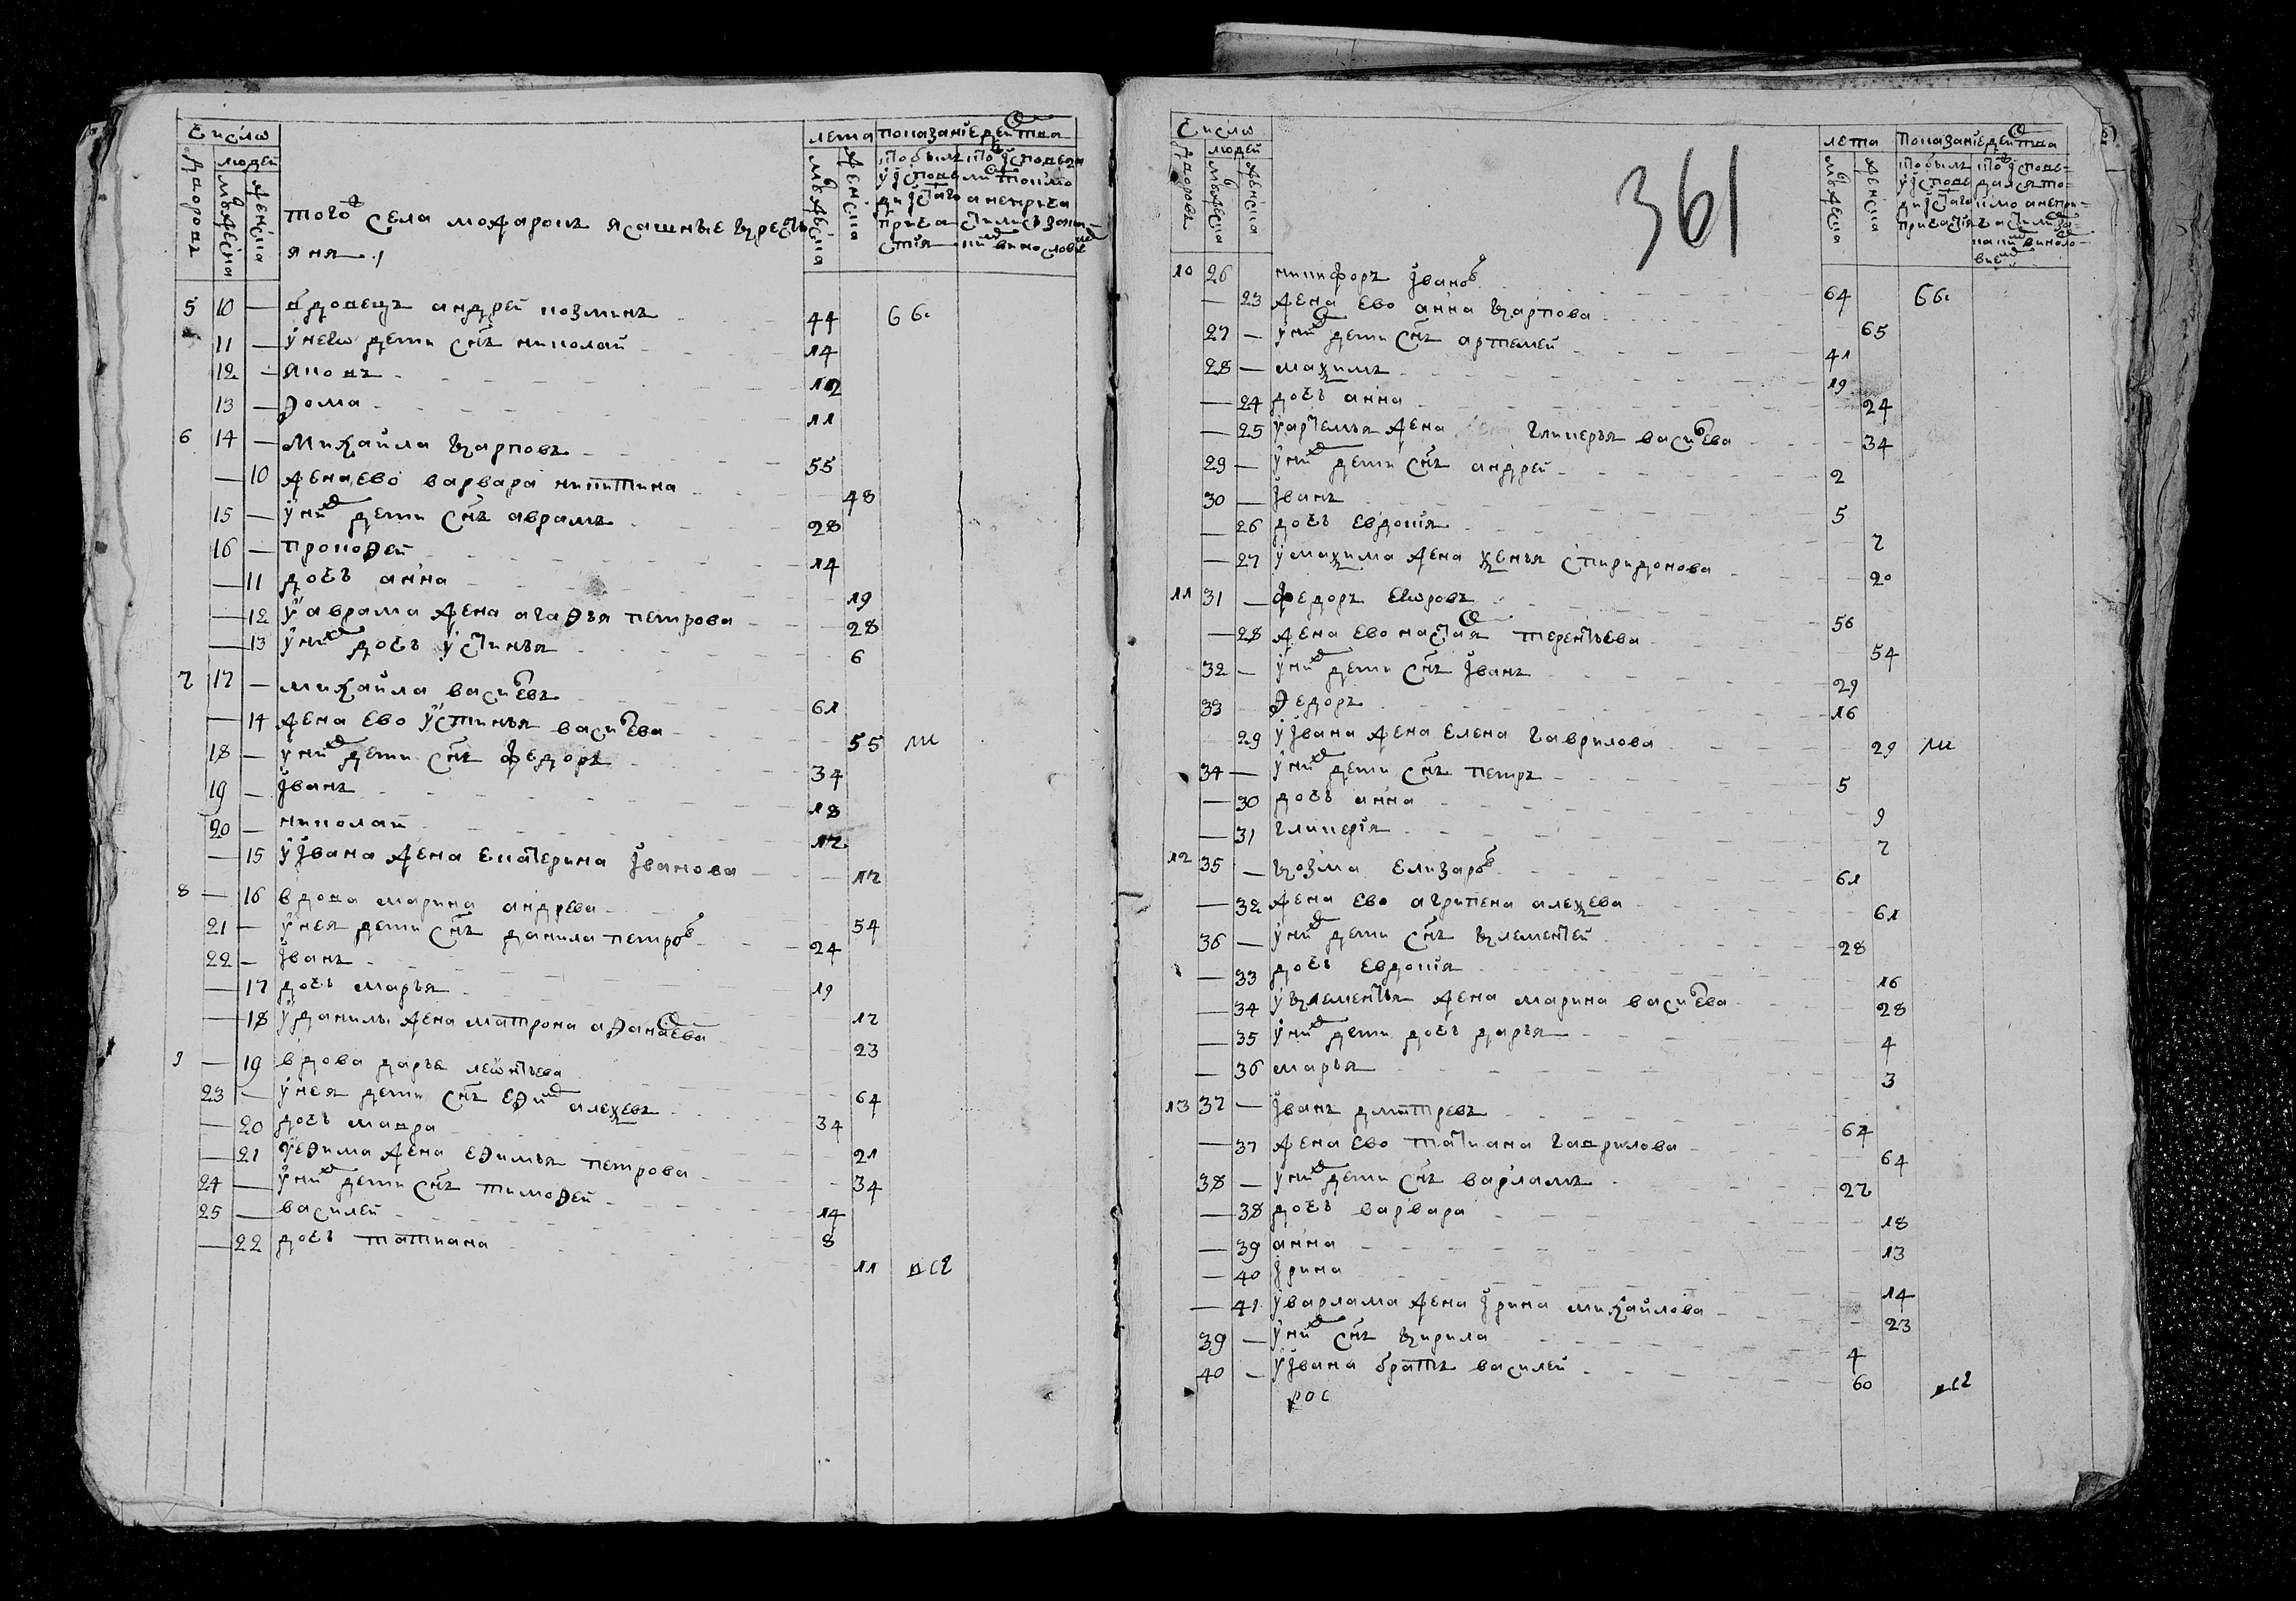 число
людей
дворовъ
мужеска
женска
лета
мужеска
женска
показание действа
кто былъ у исповеди и святаго причастия
кто исповедались токмо а не причастились и за каким винословием
того села можарокъ ясашные крестьяня
5 10 — вдовецъ андрей козминъ 44 бы
11 — у нево дети снъ николай 14
12 — яковъ 12
13 — фома 11
6 14 — михайла карповъ 55
— 10 жена ево варвара никитина 48
15 — у них дети снъ аврамъ 28
16 — прокофей 14
— 11 дочь анна 19
— 12 у аврама жена агафья петрова 28
— 13 у них дочь устинья 6
7 17 — михайла василевъ 61
— 14 жена ево устинья василева 55 ли
18 — у них дети снъ федоръ 34
19 — иванъ 18
20 — николай 17
— 15 у ивана жена екатерина иванова 17
8 — 16 вдова марина андрева 54
21 — у нея дети снъ данила петров 24
22 — иванъ 19
— 17 дочь марья 17
— 18 у данилы жена матрона афанасева 23
9 — 19 вдова дарья леонтьева 64
23 — у нея дети снъ ефим алексевъ 34
— 20 дочь мавра 21
— 21 у ефима жена ефимья петрова 34
24 — у них дети снъ тимофей 14
25 — василей 8
— 22 дочь татиана 11 все
361
число
людей
дворовъ
мужеска
женска
лета
мужеска
женска
показание действа
кто былъ у исповеди и святаго причастия
кто исповедался токмо а не причастился и за каким винословием
10 26 никифоръ иванов 64 бы
— 23 жена ево анна карпова 65
27 — у них дети снъ артемей 41
28 — максимъ 19
— 24 дочь анна 24
— 25 у артемья жена гликерья василева 34
29 — у них дети снъ андрей 2
30 — иванъ 5
— 26 дочь евдокия 7
— 27 у максима жена ксенья спиридонова 20
11 31 — федоръ егоровъ 56
— 28 жена ево настася терентьева 54
32 — у них дети снъ иванъ 29
33 федоръ 16
29 у ивана жена елена гаврилова 29 ли
34 — у них дети снъ петръ 5
— 30 дочь анна 9
— 31 гликерия 7
12 35 — козма елизаров 61
— 32 жена ево агрипена алексева 61
36 — у них дети снъ клементей 28
— 33 дочь евдокия 16
— 34 у клементья жена марина василева 28
— 35 у них дети дочь дарья 4
— 36 марья 3
13 37 — иванъ дмитревъ 67
— 37 жена ево татиана гаврилова 64
38 — у них дети снъ варламъ 27
— 38 дочь варвара 18
— 39 анна 13
— 40 ирина 14
— 41 у варлама жена ирина михайлова 23
39 — у них снъ кирила 4
40 — у ивана братъ василей 60 все